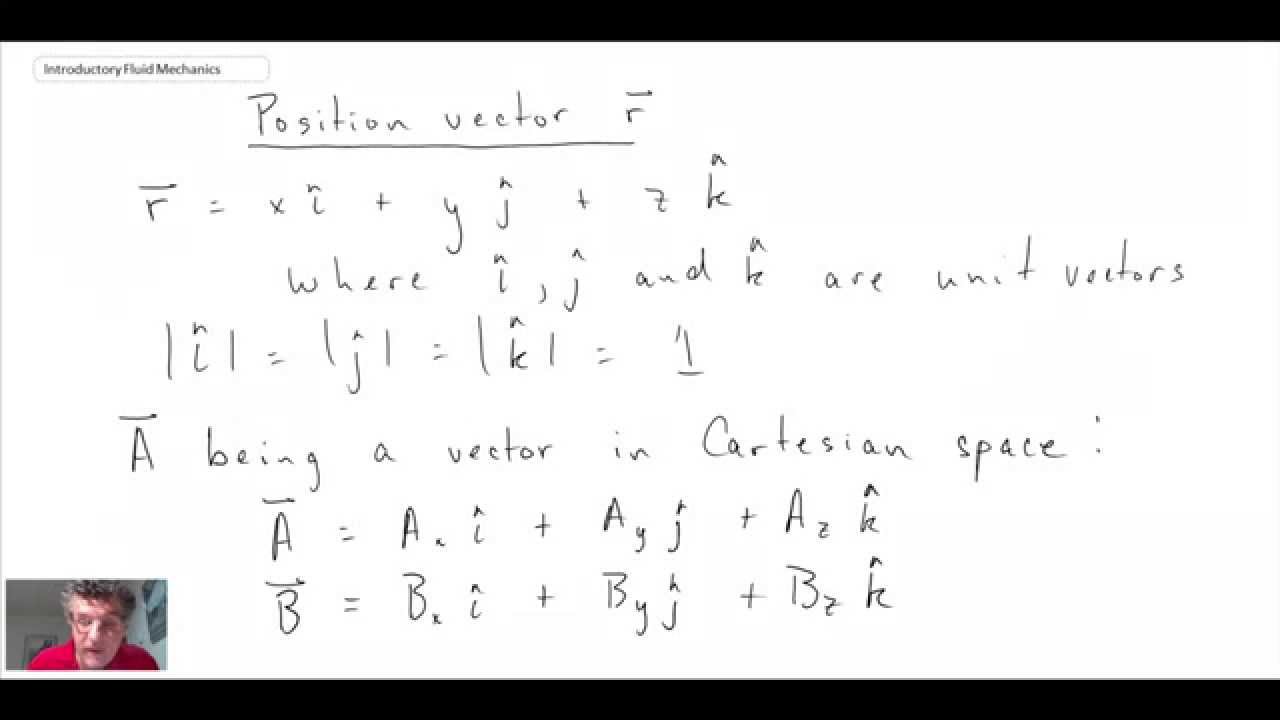 Introductory Fluid Mechanics
Position vector r⃗
r⃗ = x î + y ĵ + z k̂
where î, ĵ and k̂ are unit vectors
|î| = |ĵ| = |k̂| = 1
A⃗ being a vector in Cartesian space:
A⃗ = Aₓ î + A_y ĵ + A_z k̂
B⃗ = Bₓ î + B_y ĵ + B_z k̂